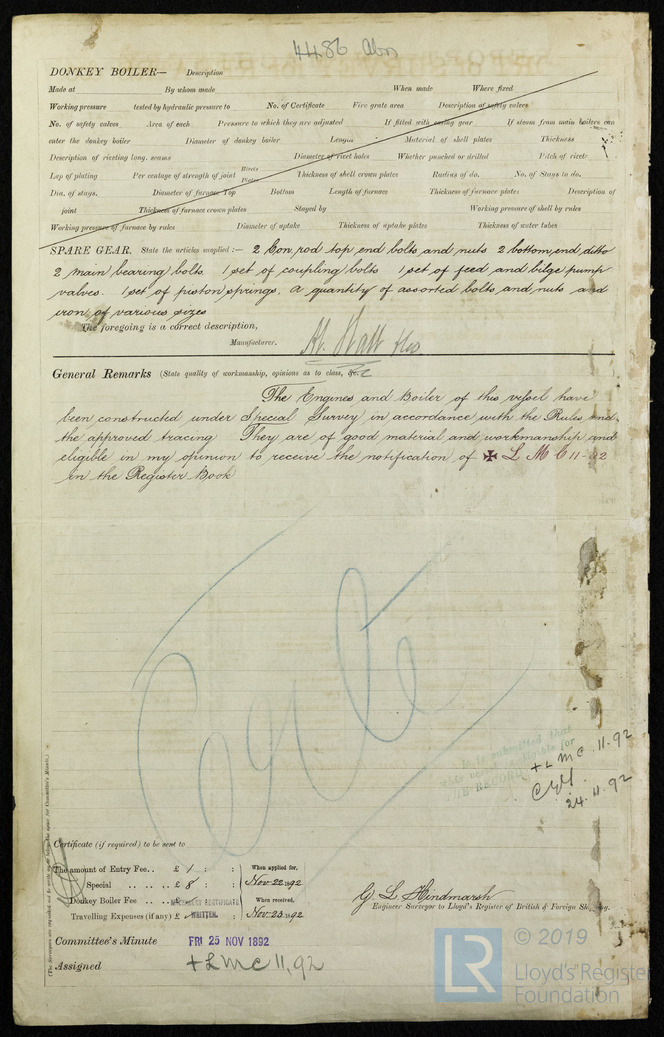 4486 Abn
DONKEY BOILER— Description
Made at By whom made When made Where fixed
Working pressure tested by hydraulic pressure to No. of Certificate Fire grate area Description of safety valves
No. of safety valves Area of each Pressure to which they are adjusted If fitted with easing gear If steam from main boilers can
enter the donkey boiler Diameter of donkey boiler Length Material of shell plates Thickness
Description of riveting long. seams Diameter of rivet holes Whether punched or drilled Pitch of rivets
Lap of plating Per centage of strength of joint Rivets Plates Thickness of shell crown plates Radius of do. No. of Stays to do.
Dia. of stays. Diameter of furnace Top Bottom Length of furnace Thickness of furnace plates Description of
joint Thickness of furnace crown plates Stayed by Working pressure of shell by rules
Working pressure of furnace by rules Diameter of uptake Thickness of uptake plates Thickness of water tubes
SPARE GEAR. State the articles supplied :— 2 Con rod top end bolts and nuts 2 bottom end ditto
2 main bearing bolts. 1 set of coupling bolts 1 set of feed and bilge pump
valves. 1 set of piston springs. A quantity of assorted bolts and nuts and
iron of various sizes
The foregoing is a correct description,
Manufacturer.
General Remarks (State quality of workmanship, opinions as to class, &c.
The Engines and Boiler of this vessel have
been constructed under Special Survey in accordance with the Rules and
the approved tracing They are of good material and workmanship and
eligible in my opinion to receive the notification of ✠ L M C 11-92
in the Register Book
submitted that
eligible for
THE RECORD
+ L M C 11.92
24.11.92
Certificate (if required) to be sent to
The amount of Entry Fee .. £ 1 : : When applied for,
Special .. .. .. £ 8 : : Nov 22 1892
Donkey Boiler Fee .. .. £ When received,
CERTIFICATE
WRITTEN.
Travelling Expenses (if any) £ Nov 23 1892
G. L. Hindmarsh
Engineer Surveyor to Lloyd's Register of British & Foreign Shipping.
Committee's Minute FRI 25 NOV 1892
Assigned + L M C 11,92
LR © 2019
Lloyd's Register
Foundation